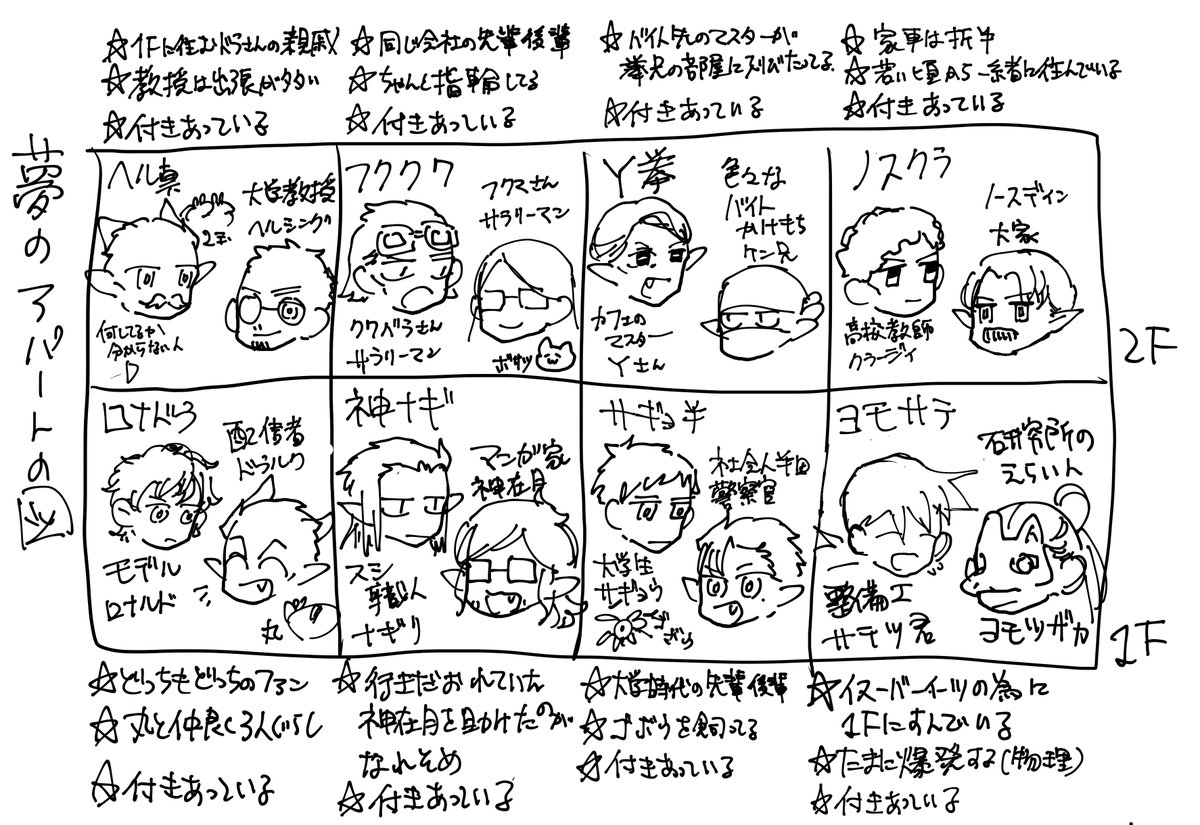 夢のアパートの図
☆1Fに住むドラさんの親戚
☆教授は出張が多い
☆付きあっている
☆同じ会社の先輩後輩
☆ちゃんと指輪してる
☆付きあっている
☆バイト先のマスターが
拳兄の部屋に入りびたってる
☆付きあっている
☆家事は折半
☆若い頃から一緒に住んでいる
☆付きあっている
ヘル真
大学教授
ヘルシング
2玉
何してるか
分からない人
フククワ
フクマさん
サラリーマン
クワバラさん
サラリーマン
ボタツ
Y拳
色々な
バイト
かけもち
ケン兄
カフェの
マスター
Yさん
ノスクラ
ノースディン
大家
高校教師
クラージィ
2F
ロナドラ
配信者
ドラルク
モデル
ロナルド
丸
神ナギ
マンガ家
神在月
スシ
職人
ナギリ
サギョ半
社会人半田
警察官
大学生
サギョウ
ゴボウ
ヨモサテ
研究所の
えらい人
整備工
サテツ君
ヨモツザカ
1F
☆どっちもどっちのファン
☆丸と仲良く3人ぐらし
☆付きあっている
☆行きだおれていた
神在月を助けたのが
なれそめ
☆付きあっている
☆大学時代の先輩後輩
☆ゴボウを飼ってる
☆付きあっている
☆イヌーバーイーツの為に
1Fにすんでいる
☆たまに爆発する(物理)
☆付きあっている